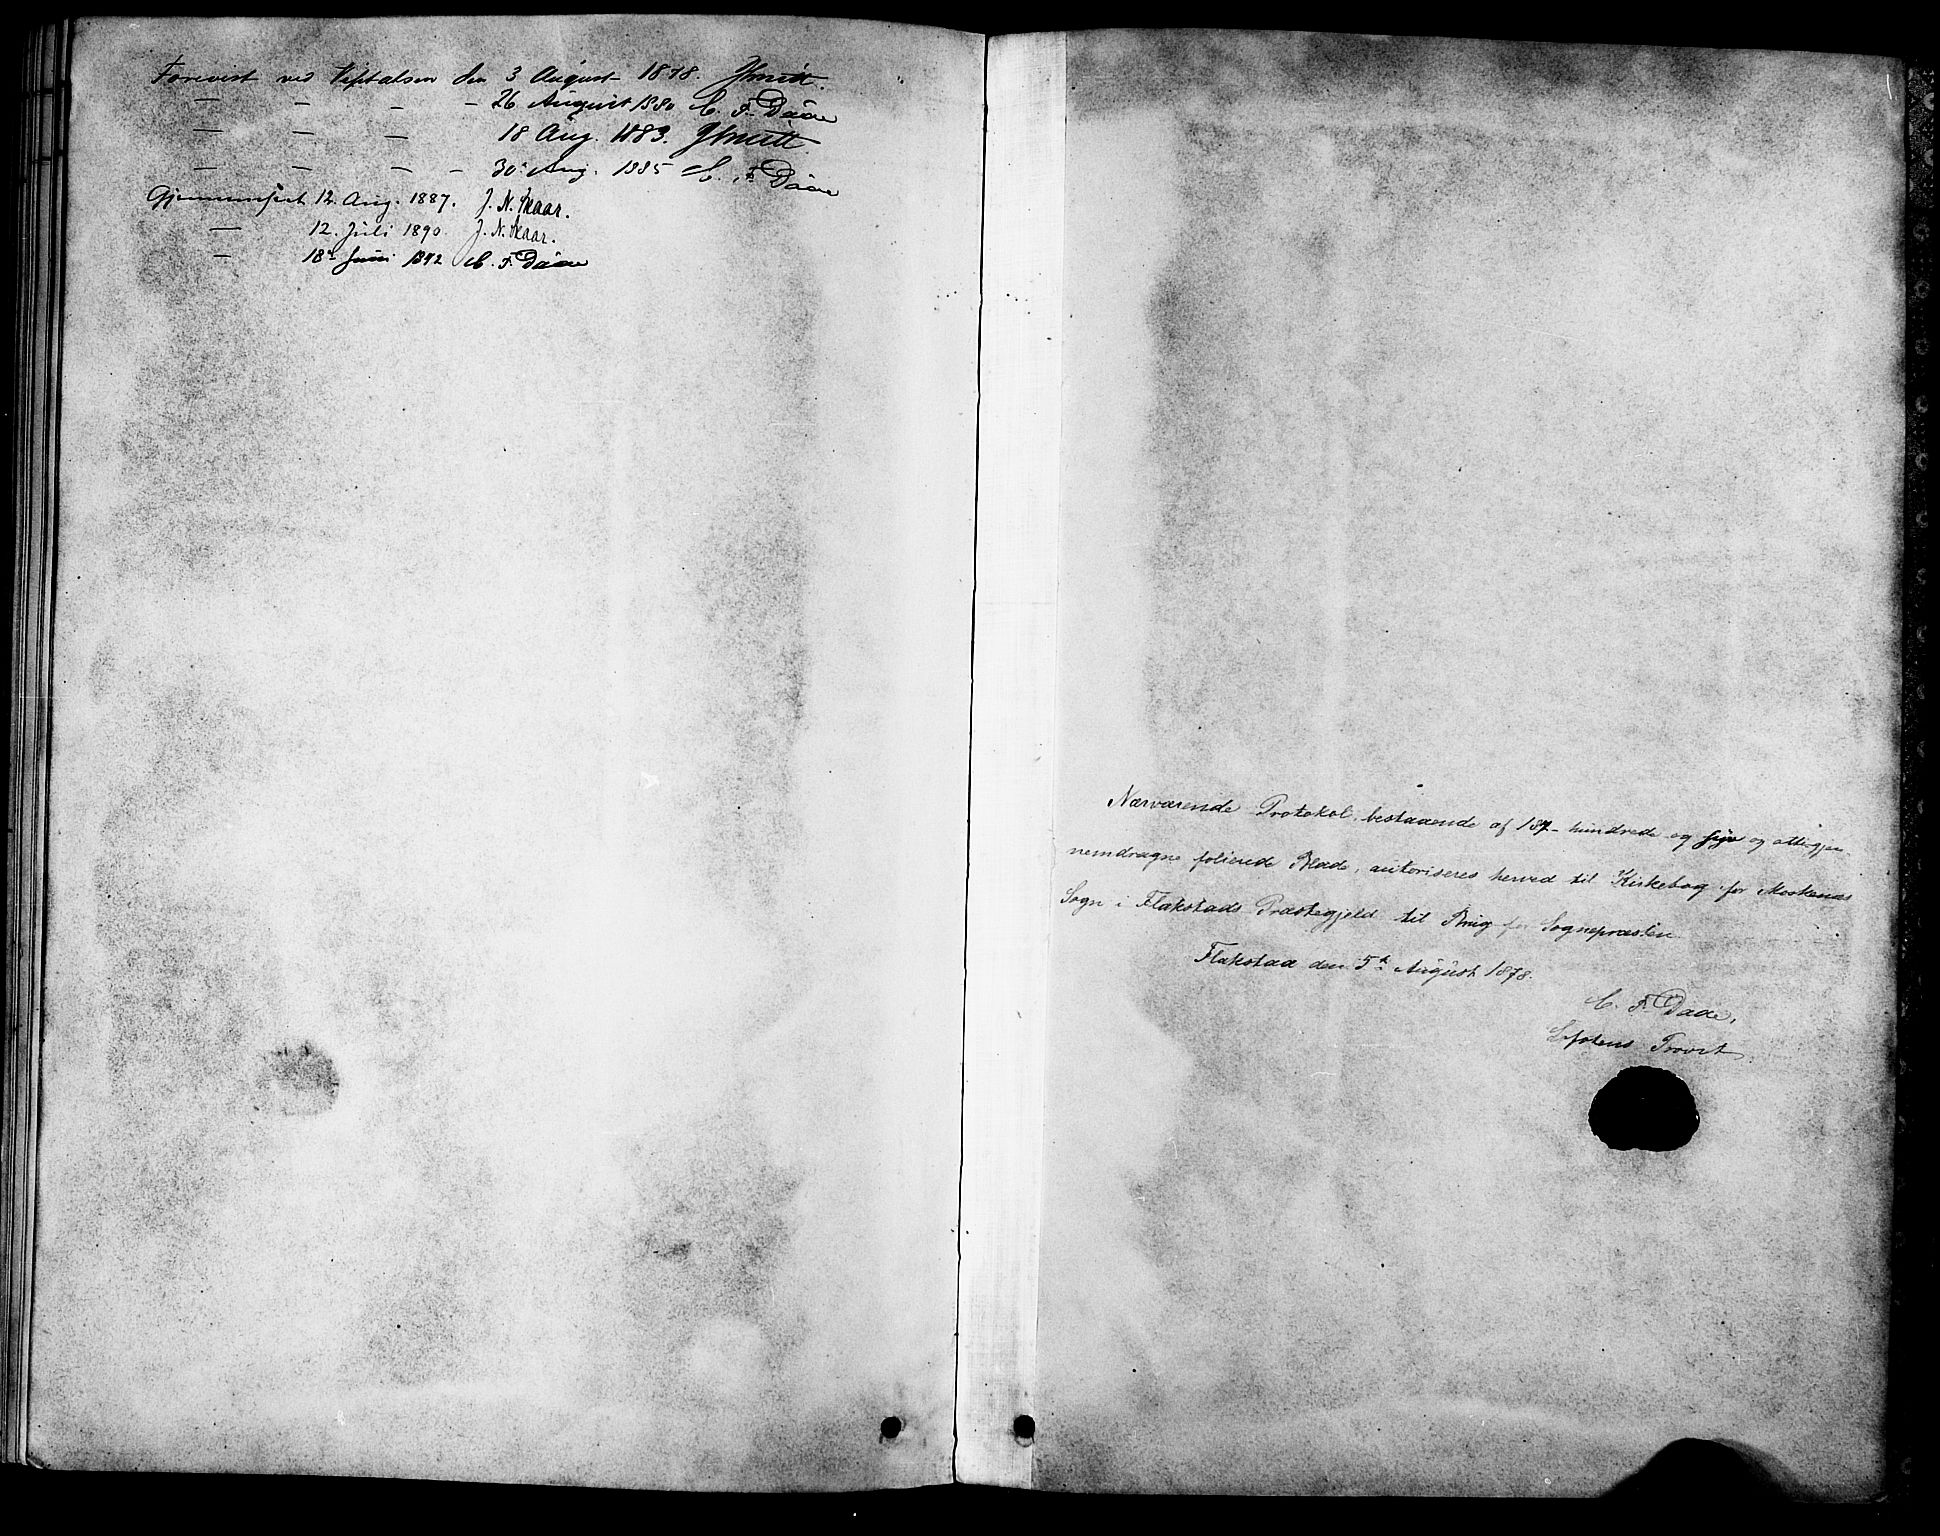 Forevist ved Visitatsen den 3 August 1878.
— — — — 26 August 1880 C. F. Daae
— — — 18 Aug. 1883.
— — — — 30 Aug. 1885 C. F. Daae
Gjennemseet 12. Aug. 1887. J. N. Skaar.
— 12. Juli 1890. J. N. Skaar.
— 18de Juni 1892 C. F. Daae
Nærværende Protokol, bestaaende af 187 - hundrede og syv og otti gjen-
nemdragne folierede Blade, autoriseres herved til Kirkebog for Moskenæs
Sogn i Flakstads Præstegjeld til Brug for Sognepræsten
Flakstad den 5te August 1878.
C. F. Daae,
Lofotens Provst